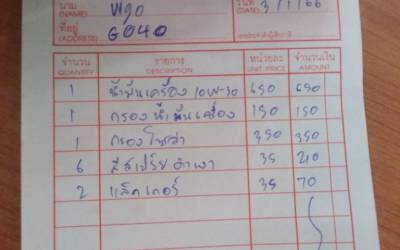 นาม
(NAME)
วันที่
(DATE) 3/1/66
ที่อยู่
(ADDRESS) GO40
จำนวน รายการ หน่วยละ จำนวนเงิน
QUANTITY DESCRIPTION UNIT PRICE AMOUNT
1 น้ำมันเครื่อง 10W-30 650 650
1 กรองน้ำมันเครื่อง 150 150
1 กรองโซล่า 350 350
6 สีสเปร์ย ดำเงา 35 210
2 แล็คเกอร์ 35 70